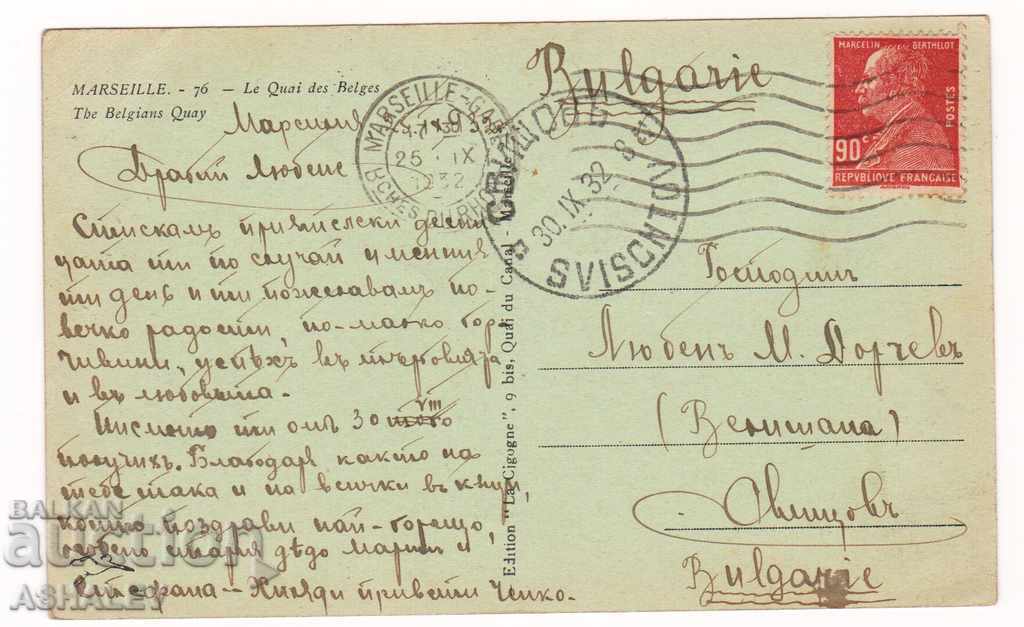 MARSEILLE. - 76 - Le Quai des Belges
The Belgians Quay
Марсилия
Драгий Любене
Стискамъ приятелски десни
цата ти по случай именния
ти день и ти пожелавамъ по-
вечко радости, по-малко гор-
чивини, успѣхъ въ търговията
и въ любовьта.
Писмото ти отъ 30 VIII
получихъ. Благодаря както на
тебе така и на всички въ
поздрави най-горещо
дѣдо Марин и
приветъ Ченко.
Edition "La Cigogne", 9 bis, Quai du Canal - Marseille
MARSEILLE-GARE
25 IX
1932
BCHES DU RHONE
СВИЩОВЪ
30.IX.32.8
SVISCHTOV
Bulgarie
MARCELIN BERTHELOT
POSTES
90c
REPVBLIQVE FRANÇAISE
Господинъ
Любенъ М. Дорчевъ
Свищовъ
Bulgarie
BALKAN
auction
ASHALEY